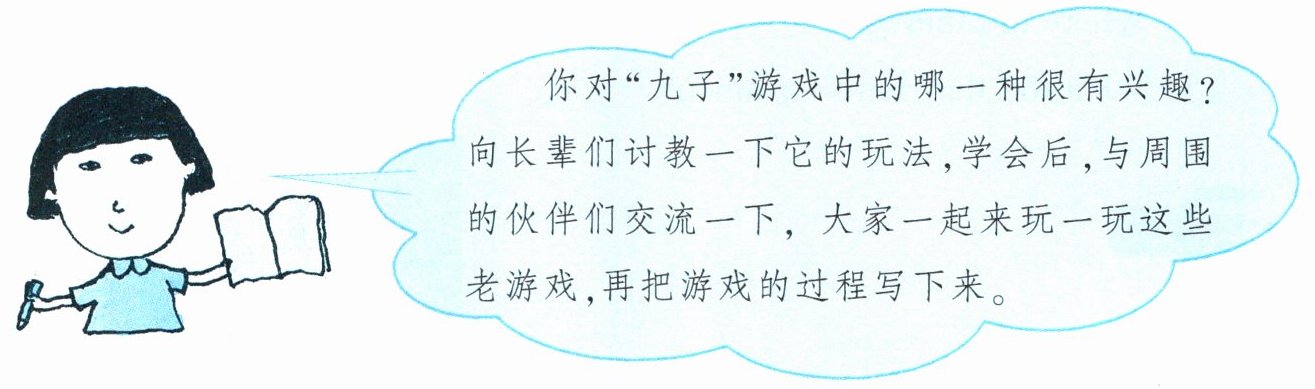 你对“九子”游戏中的哪一种很有兴趣?
向长辈们讨教一下它的玩法,学会后,与周围
的伙伴们交流一下,大家一起来玩一玩这些
老游戏,再把游戏的过程写下来。